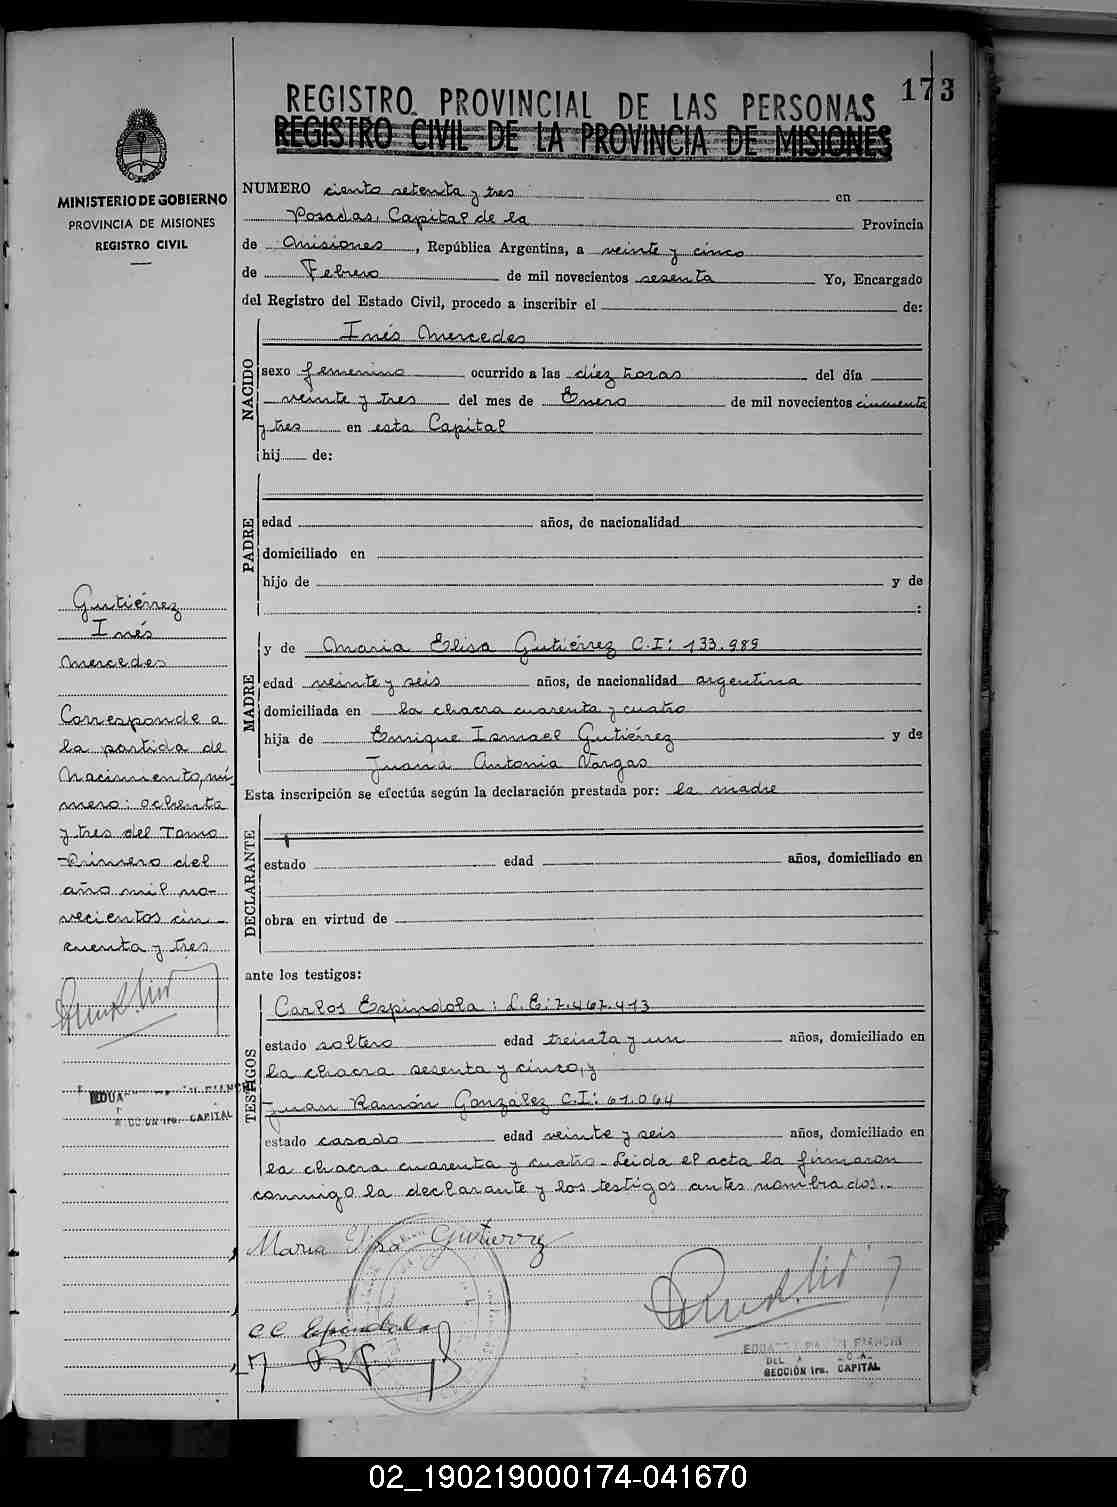 173
REGISTRO PROVINCIAL DE LAS PERSONAS
REGISTRO CIVIL DE LA PROVINCIA DE MISIONES
MINISTERIO DE GOBIERNO
PROVINCIA DE MISIONES
REGISTRO CIVIL
NUMERO ciento setenta y tres en
Posadas, Capital de la Provincia
de Misiones, República Argentina, a veinte y cinco
de Febrero de mil novecientos sesenta Yo, Encargado
del Registro del Estado Civil, procedo a inscribir el de:
NACIDO
Inés Mercedes
sexo femenino ocurrido a las diez horas del día
veinte y tres del mes de Enero de mil novecientos cincuenta
y tres en esta Capital
hij de:
PADRE
edad años, de nacionalidad
domiciliado en
hijo de y de
:
MADRE
y de Maria Elisa Gutiérrez C.I: 133.989
edad veinte y seis años, de nacionalidad argentina
domiciliada en la chacra cuarenta y cuatro
hija de Enrique Ismael Gutiérrez y de
Juana Antonia Vargas
Esta inscripción se efectúa según la declaración prestada por: la madre
DECLARANTE
estado edad años, domiciliado en
obra en virtud de
ante los testigos:
TESTIGOS
Carlos Espindola: L.E: 7.467.413
estado soltero edad treinta y un años, domiciliado en
la chacra sesenta y cinco, y
Juan Ramón González C.I: 61.064
estado casado edad veinte y seis años, domiciliado en
la chacra cuarenta y cuatro - Leida el acta la firmaron
conmigo la declarante y los testigos antes nombrados.-
Gutiérrez
Inés
Mercedes
Corresponde a
la partida de
Nacimiento, nú
mero: ochenta
y tres del Tomo
Primero del
año mil no-
vecientos cin-
cuenta y tres
CAPITAL
Maria Gutierrez
C C Espindola
SECCIÓN 1ra. CAPITAL
02_190219000174-041670